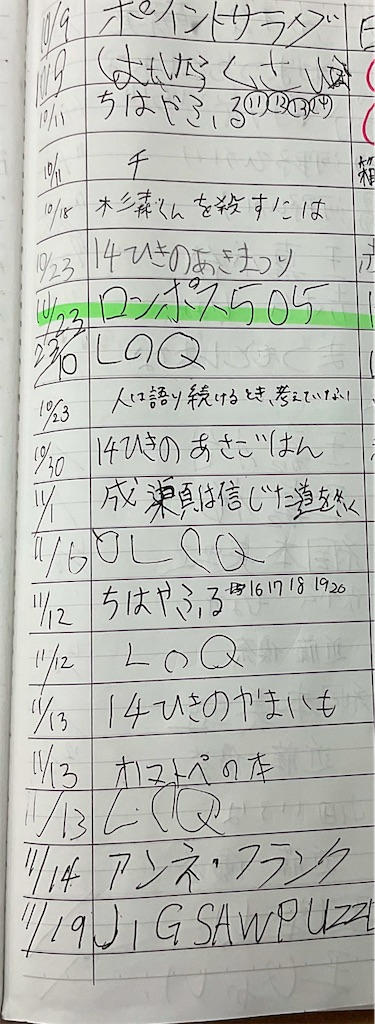 10/9 ポイントサライブ
10/9
10/11 ちはやふる⑪⑫⑬⑭
10/11 チ 箱
10/18 杉森くんを殺すには
10/23 14ひきのあきまつり
10/23 ロンポス505
23/10 LのQ
10/23 人は語り続けるとき、考えていない
10/30 14ひきのあさごはん
11/1 成瀬は信じた道をいく
11/6 LQ
11/12 ちはやふる 16 17 18 19 20
11/12 LのQ
11/13 14ひきのやまいも
11/13 オノマトペの本
11/13 LのQ
11/14 アンネ・フランク
11/19 JIGSAWPUZZL